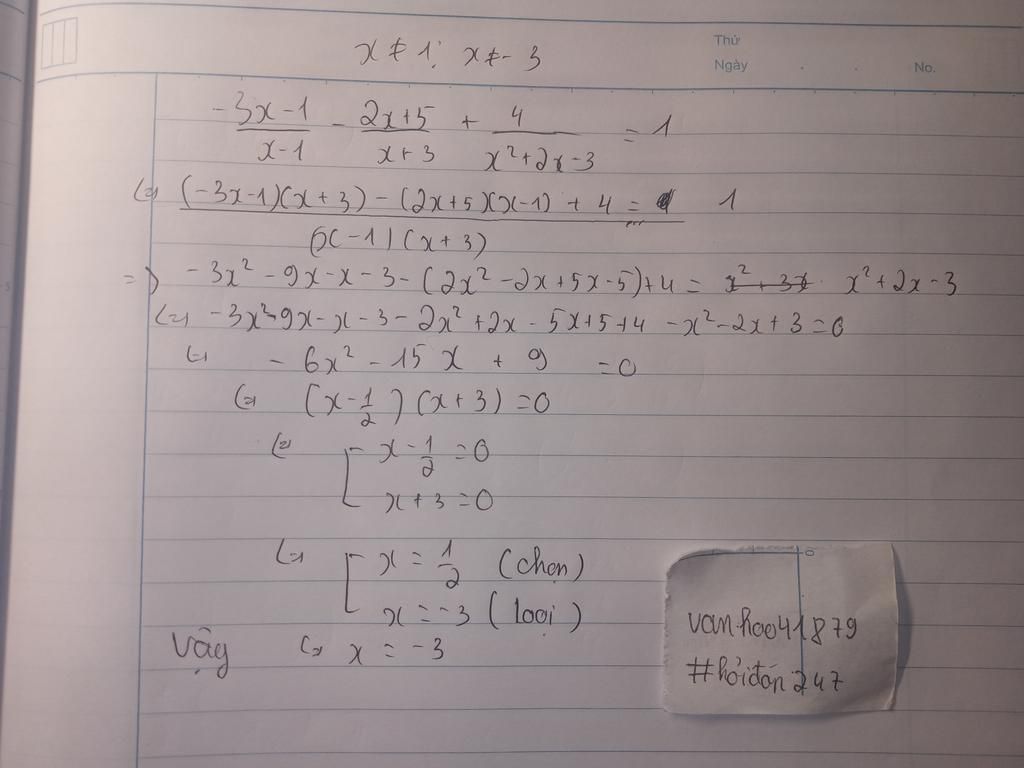 x ≠ 1; x ≠ -3
Thứ
Ngày . . No.
\frac{-3x-1}{x-1} - \frac{2x+5}{x+3} + \frac{4}{x²+2x-3} = 1
(=) \frac{(-3x-1)(x+3) - (2x+5)(x-1) + 4}{(x-1)(x+3)} = 1
=> -3x² - 9x - x - 3 - (2x² - 2x + 5x - 5) + 4 = x² + 2x - 3
(=) -3x² - 9x - x - 3 - 2x² + 2x - 5x + 5 + 4 - x² - 2x + 3 = 0
(=) - 6x² - 15x + 9 = 0
(=) (x - \frac{1}{2})(x + 3) = 0
(=) [ x - \frac{1}{2} = 0
x + 3 = 0
(=) [ x = \frac{1}{2} (chọn)
x = -3 (loại)
Vậy (=) x = -3
vanhao041879
#hỏiđáp247